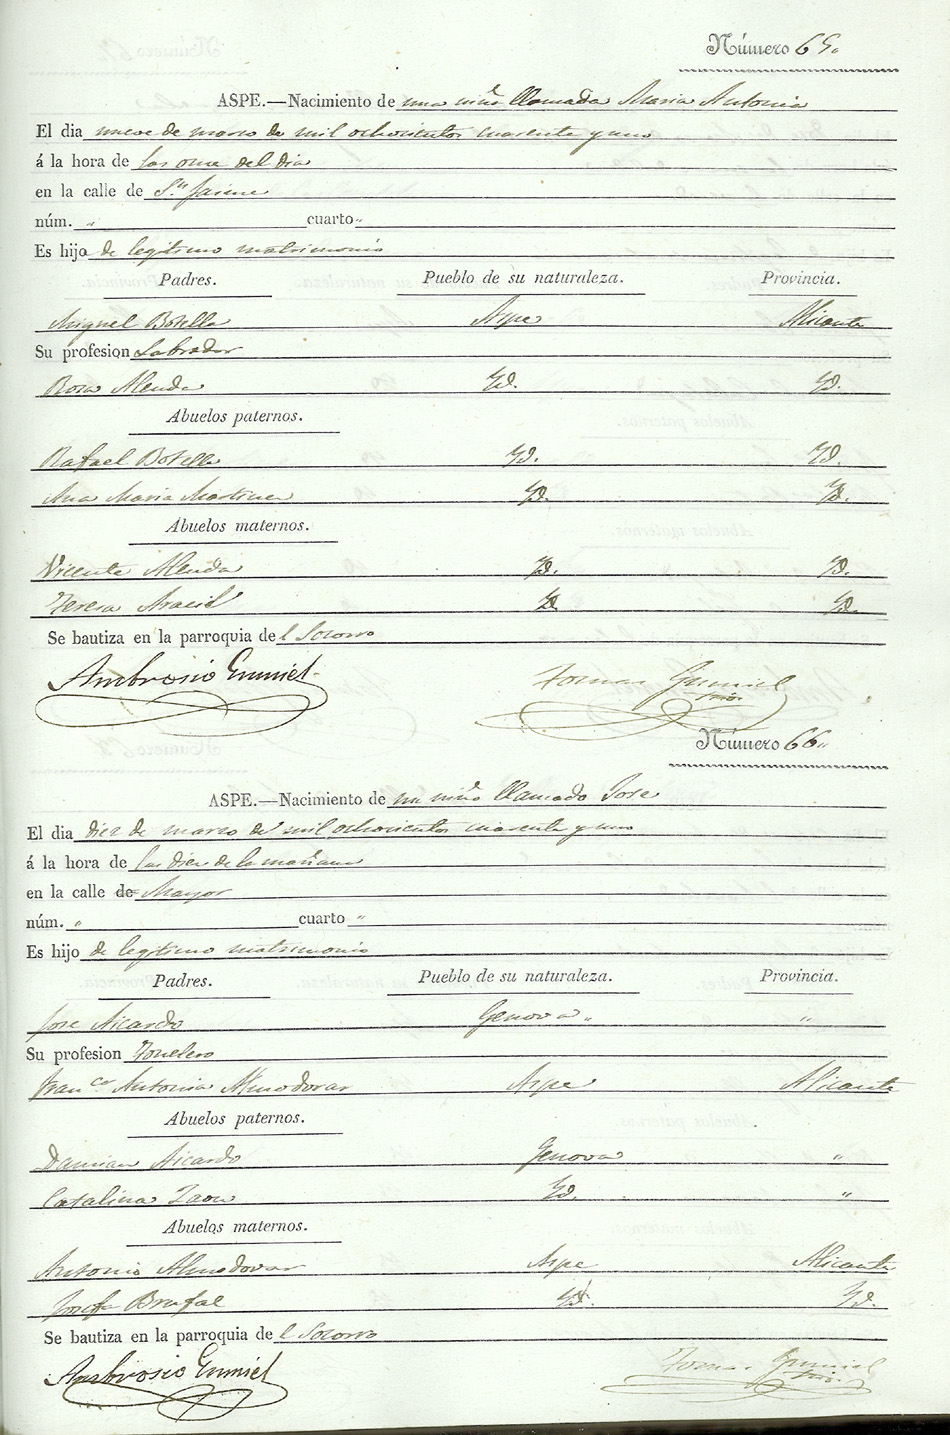 Número 65.
ASPE.—Nacimiento de una niña llamada Maria Antonia
El dia nueve de marzo de mil ochocientos cuarenta y uno
á la hora de las once del dia
en la calle de Sn. Jaime
núm. " cuarto "
Es hijo de legitimo matrimonio
Padres. Pueblo de su naturaleza. Provincia.
Miguel Botella Aspe Alicante
Su profesion Labrador
Rosa Alenda Yd. Yd.
Abuelos paternos.
Rafael Botella Yd. Yd.
Ana Maria Martinez Yd. Yd.
Abuelos maternos.
Vicente Alenda Yd. Yd.
Teresa Aracil Yd. Yd.
Se bautiza en la parroquia del Socorro
Ambrosio Gumiel Tomas Gumiel
Srio.
Número 66.
ASPE.—Nacimiento de un niño llamado Jose
El dia diez de marzo de mil ochocientos cuarenta y uno
á la hora de las diez de la mañana
en la calle de Mayor
núm. " cuarto "
Es hijo de legitimo matrimonio
Padres. Pueblo de su naturaleza. Provincia.
Jose Aicardo Genova " "
Su profesion Tonelero
Franca. Antonia Almodovar Aspe Alicante
Abuelos paternos.
Damian Aicardo Genova "
Catalina Yd. "
Abuelos maternos.
Antonio Almodovar Aspe Alicante
Josefa Brufal Yd. Yd.
Se bautiza en la parroquia del Socorro
Ambrosio Gumiel Tomas Gumiel
Srio.